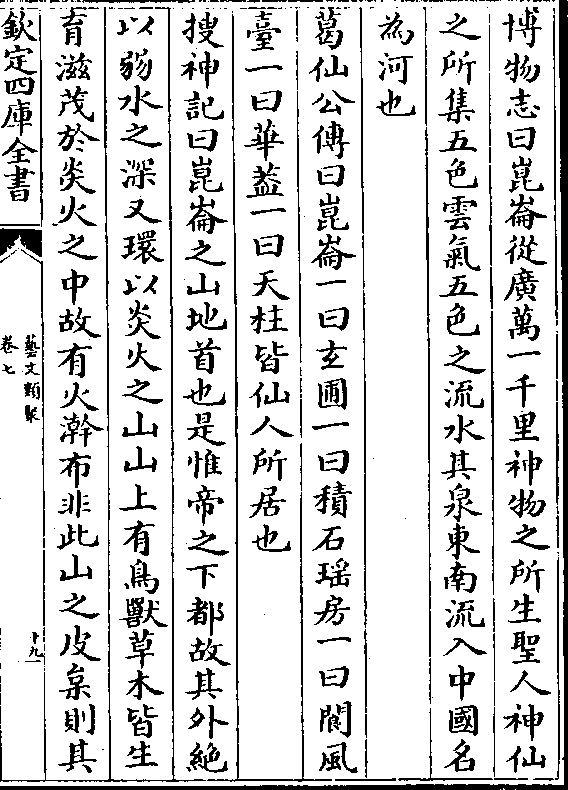 博物志曰崑崙從廣萬一千里神物之所生聖人神仙
之所集五色雲氣五色之流水其泉東南流入中國名
為河也
葛仙公傳曰崑崙一曰玄圃一曰積石瑶房一曰閬風
臺一曰華葢一曰天柱皆仙人所居也
搜神記曰崑崙之山地首也是惟帝之下都故其外絶
以弱水之深又環以炎火之山山上有鳥獸草木皆生
育滋茂於炎火之中故有火澣布非此山之皮枲則其
欽定四庫全書
藝文類聚
卷七
十九